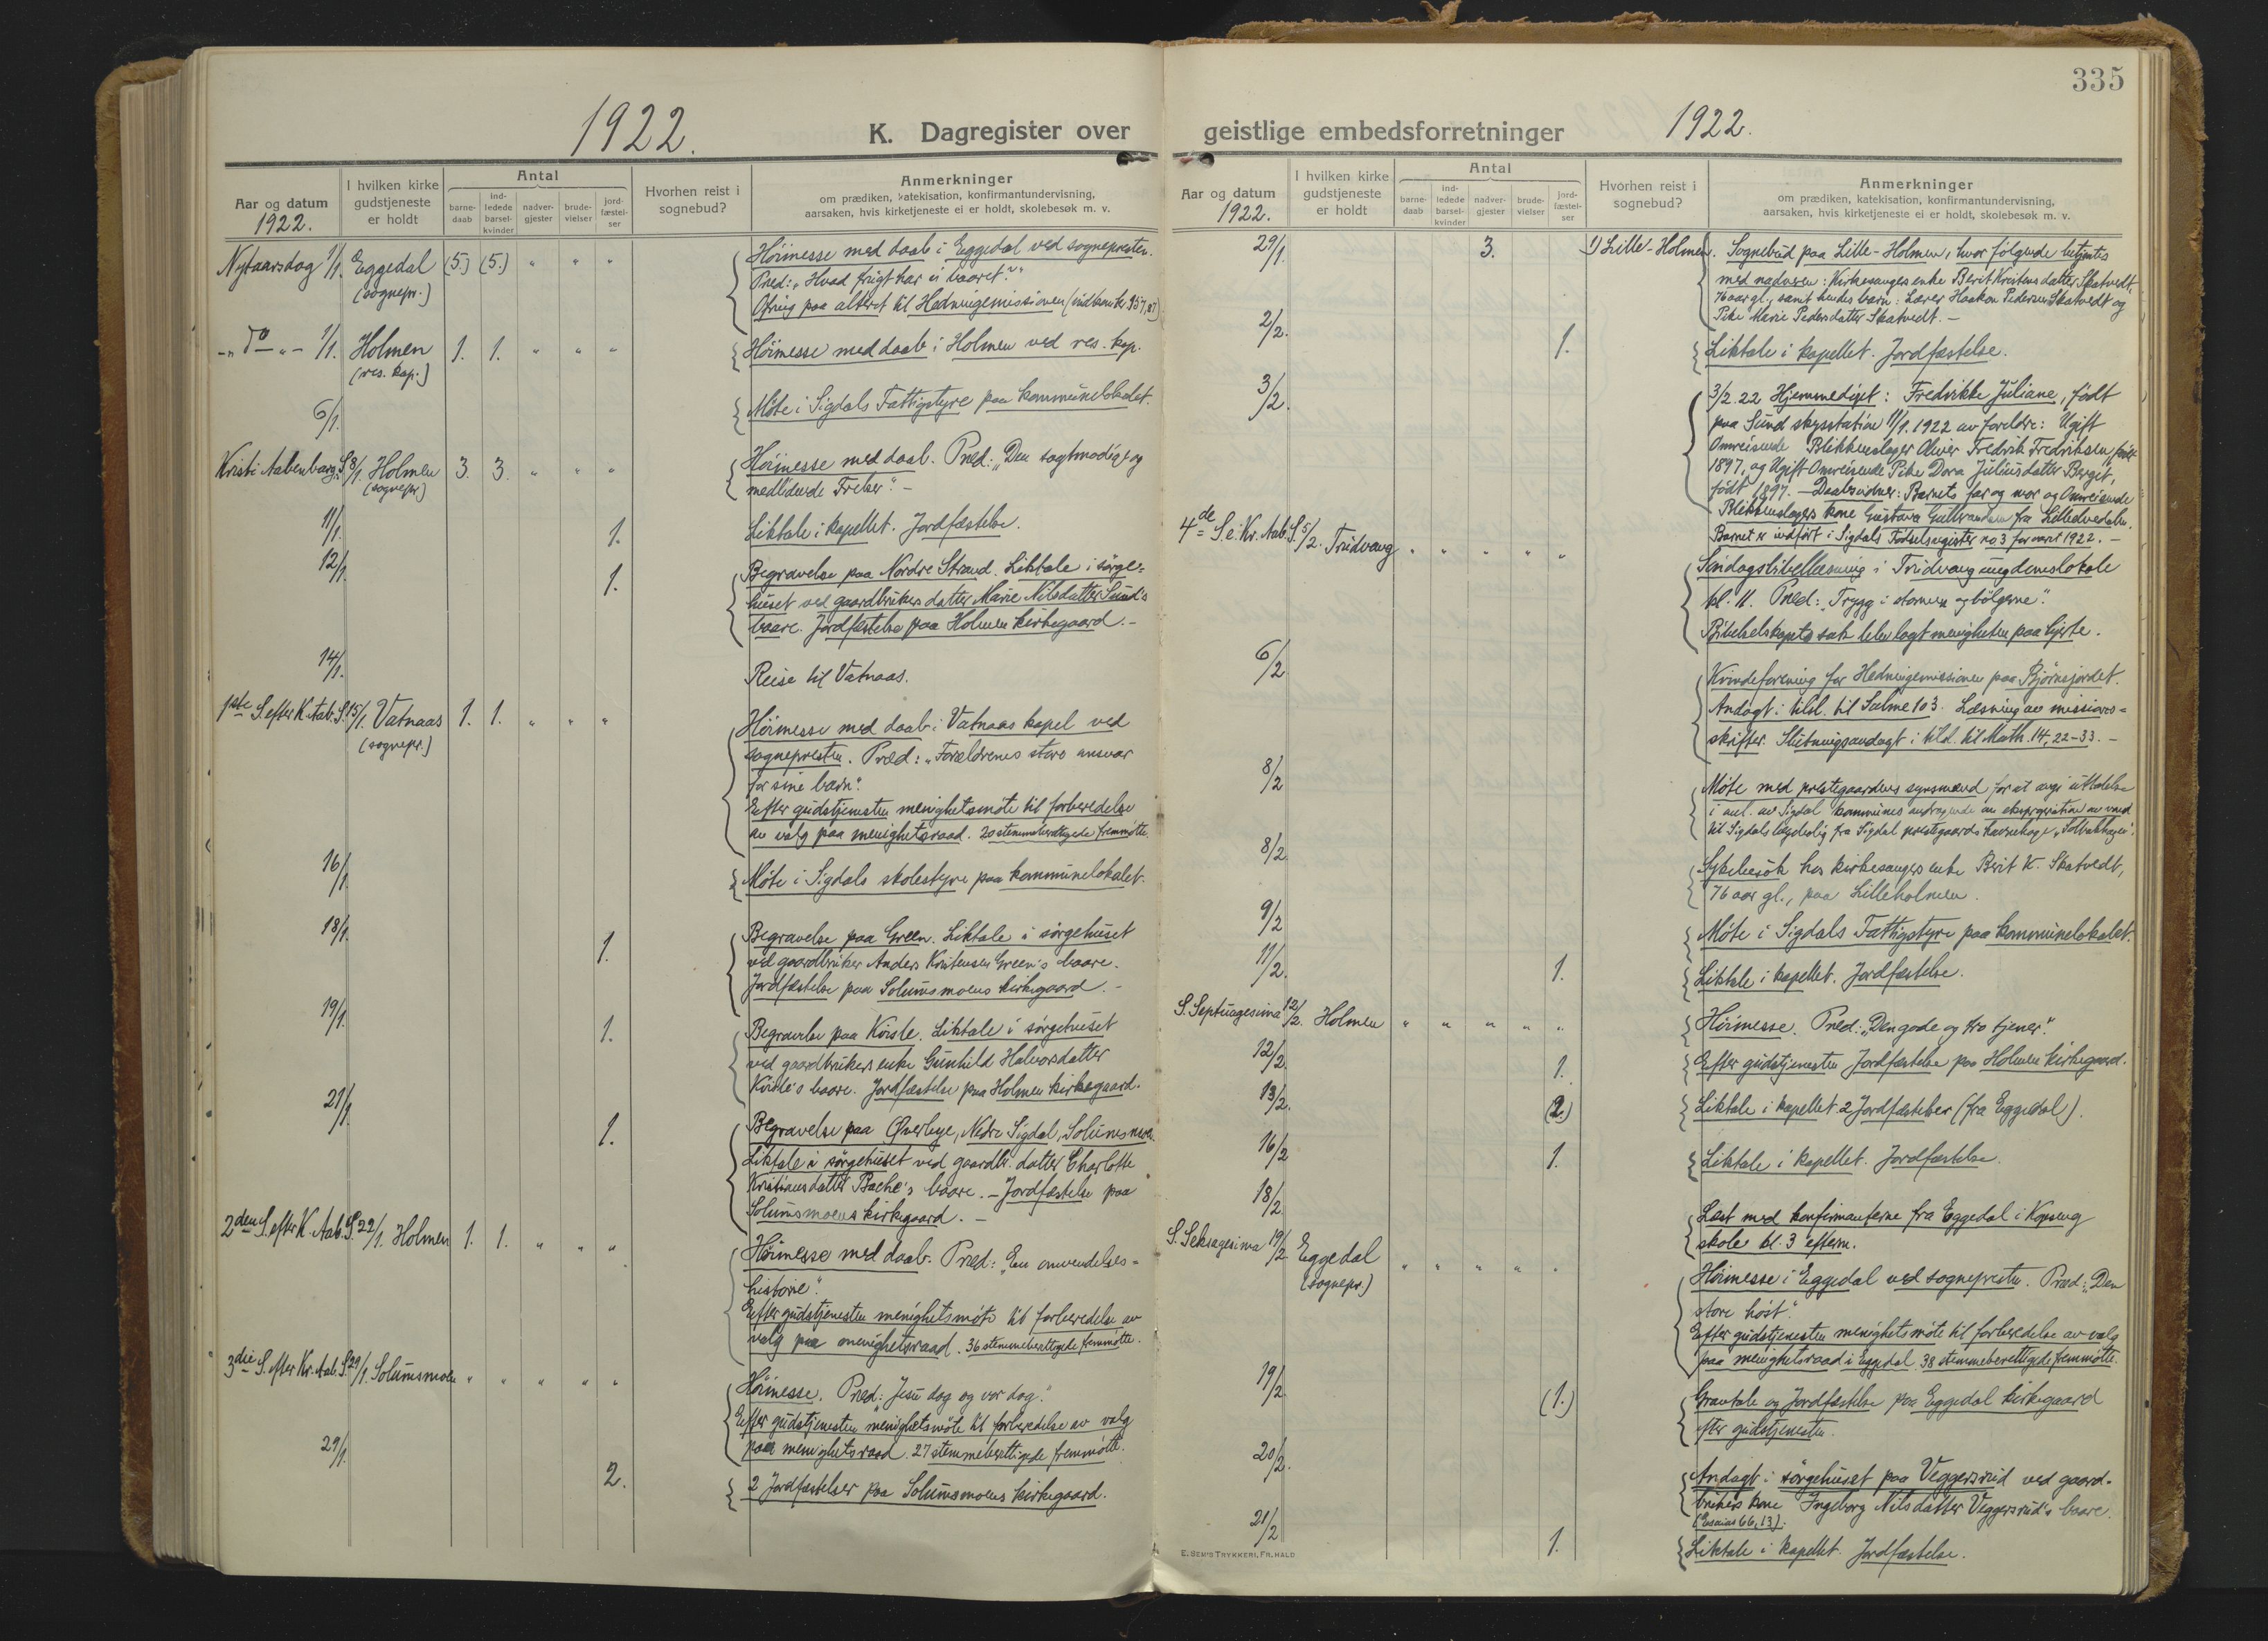 335
1922.
K. Dagregister over geistlige embedsforretninger
1922.
Aar og datum
1922.
I hvilken kirke gudstjeneste er holdt
Antal
barne-daab
ind-ledede barsel-kvinder
nadver-gjester
brude-vielser
jord-fæstel-ser
Hvorhen reist i sognebud?
Anmerkninger
om prædiken, katekisation, konfirmantundervisning,
aarsaken, hvis kirketjeneste ei er holdt, skolebesøk m. v.
Nytaarsdag 1/1. Eggedal (5.) (5.) " " "
(sognepr.)
Höimesse med daab i Eggedal ved sognepresten.
Præd.: "Hvad frugt har vi baaret?"
Ofring paa alteret til Hedningemissionen
-"- do -"- 1/1. Holmen 1. 1. " " "
(res. kap.)
Höimesse med daab i Holmen ved res. kap.
6/1.
Möte i Sigdals Fattigstyre paa kommunelokalet.
Kristi Aabenbar. S. 8/1. Holmen 3. 3. " " "
(sognepr.)
Höimesse med daab. Præd.: "Den sagtmodige og
medlidende Frelser". -
11/1. 1.
Liktale i kapellet. Jordfæstelse.
12/1. 1.
Begravelse paa Nordre Strand. Liktale i sörge-
huset ved gaardbrukers datter Marie Nilsdatter Sund's
baare. Jordfæstelse paa Holmen kirkegaard. -
14/1.
Reise til Vatnaas.
1ste S. efter K. Aab. S. 15/1. Vatnaas 1. 1. " " "
(sognepr.)
Höimesse med daab i Vatnaas kapel ved
sognepresten. Præd.: "Forældrenes store ansvar
for sine barn".
Efter gudstjenesten menighetsmöte til forberedelse
av valg paa menighetsraad. 20 stemmeberettigede fremmötte.
16/1.
Möte i Sigdals skolestyre paa kommunelokalet.
18/1. 1.
Begravelse paa Green. Liktale i sörgehuset
ved gaardbruker Anders Kristensen Green's baare.
Jordfæstelse paa Solumsmoens kirkegaard. -
19/1. 1.
Begravelse paa Kolsle. Liktale i sörgehuset
ved gaardbrukers enke Gunhild Halvorsdatter
baare. Jordfæstelse paa Holmen kirkegaard.
21/1. 1.
Begravelse paa Överbye, Nedre Sigdal, Solumsmoen.
Liktale i sörgehuset ved gaardbr. datter Charlotte
Kristiansdatter Bache's baare. - Jordfæstelse paa
Solumsmoens kirkegaard. -
2den S. efter K. Aab. S. 22/1. Holmen 1. 1. " " "
Höimesse med daab. Præd.: "En omvendelses-
historie".
Efter gudstjenesten menighetsmöte til forberedelse av
valg paa menighetsraad. 36 stemmeberettigede fremmötte.
3die S. efter Kr. Aab. S. 29/1. Solumsmoen " " " " "
Höimesse. Præd.: "Jesu dag og vor dag."
Efter gudstjenesten menighetsmöte til forberedelse av valg
paa menighetsraad. 27 stemmeberettigede fremmötte.
29/1. 2.
2 Jordfæstelser paa Solumsmoens kirkegaard.
Aar og datum
1922.
I hvilken kirke gudstjeneste er holdt
Antal
barne-daab
ind-ledede barsel-kvinder
nadver-gjester
brude-vielser
jord-fæstel-ser
Hvorhen reist i sognebud?
Anmerkninger
om prædiken, katekisation, konfirmantundervisning,
aarsaken, hvis kirketjeneste ei er holdt, skolebesøk m. v.
29/1. 3. 1) Lille-Holmen.
Sognebud paa Lille-Holmen, hvor fölgende betjentes
med nadveren: Kirkesangers enke Berit Kristensdatter Skatvedt,
76 aar gl., samt hendes barn: Lærer Haakon Pedersen Skatvedt og
Pike Marie Pedersdatter Skatvedt. -
2/2. 1.
Liktale i kapellet. Jordfæstelse.
3/2.
3/2. 22 Hjemmedöpt: Fredrikke Juliane, födt
paa Sund skysstation 11/1. 1922 av forældre: Ugift
Omreisende Blikkenslager Oliver Fredrik Fredriksen född
1897, og Ugift Omreisende Pike Dora Juliusdatter Bergit,
födt 1897. - Daabsvidner: Barnets far og mor og Omreisende
Blikkenslagers kone Gustava
Barnet er indfört i Sigdals Födselsregister no 3 for aaret 1922. -
4de S. e. Kr. Aab. S. 5/2. Tridvang " " " " "
Söndagsbibellæsning i Tridvang ungdomslokale
kl. 11. Præd.: "Trygg i stormen og bölgerne".
Bibelselskapets sak blev lagt menigheten paa hjerte.
6/2
Kvindeforening for Hedningemissionen paa Björnsjordet.
Andagt i tilsl. til Salme 103. Læsning av missions-
skrifter. Slutningsandagt i tilsl. til Math. 14, 22-33. -
8/2
Möte med prestegaardens synsmænd for at avgi uttalelse
i anl. av Sigdal kommunes andragende om ekspropriation av vand
til Sigdals lægebolig fra Sigdal prestegaards havnehage "Solbakhagen".
8/2
Sykebesök hos kirkesangers enke Berit K. Skatvedt,
76 aar gl., paa Lilleholmen.
9/2
Möte i Sigdals Fattigstyre paa kommunelokalet.
11/2. 1.
Liktale i kapellet. Jordfæstelse.
S. Septuagesima 12/2. Holmen " " " " "
Höimesse. Præd.: "Den gode og tro tjener".
12/2 1.
Efter gudstjenesten Jordfæstelse paa Holmen kirkegaard.
13/2. (2.)
Liktale i kapellet. 2 Jordfæstelser (fra Eggedal).
16/2 1.
Liktale i kapellet. Jordfæstelse.
18/2
Læst med konfirmanterne fra Eggedal i Kopseng
skole kl. 3 efterm.
S. Seksagesima 19/2 Eggedal " " " " "
(sognepr.)
Höimesse i Eggedal ved sognepresten. Præd.: "Den
store höst".
Efter gudstjenesten menighetsmöte til forberedelse av valg
paa menighetsraad i Eggedal. 38 stemmeberettigede fremmötte.
19/2 (1.)
Gravtale og Jordfæstelse paa Eggedal kirkegaard
efter gudstjenesten.
20/2.
Andagt i sörgehuset paa Veggersrud ved gaard-
brukers kone Ingeborg Nilsdatter Veggersrud's baare.
(Esaias 66, 13).
21/2 1.
Liktale i kapellet. Jordfæstelse.
E. SEM'S TRYKKERI, FR.HALD